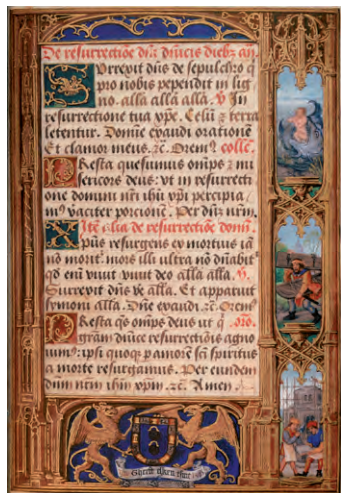 De resurrectiōe dn̄i dn̄icis diebz an̄.
Surrexit dn̄s de sepulchro q
pro nobis pependit in lig
no. alla alla alla. v In
resurrectione tua xpe. Celū ⁊ terra
letentur. Domīe exaudi orationē
Et clamor meus. ⁊c. Orem⁹ collc̄.
Presta quesumus om̄ps ⁊ mi
sericors deus: vt in resurrecti
one domini nr̄i ihū xp̄i percipia
m⁹ porcionē. Per dn̄ȝ nr̄m.
Itē alia de resurrectiōe domī.
Xpūs resurgens ex mortuis iā
nō morit mors illi ultra nō dn̄abit
qd enī viuit viuit deo alla alla. v.
Surrexit dn̄s ve alla. Et apparuit
symoni alla. Dn̄e exaudi. ⁊c. Orem⁹
Presta qs om̄ps deus ut q oro.
grām dn̄ice resurrectiōis agno
uim⁹: ipsi quoqȝ p amorē sc̄i spiritus
a morte resurgamus. Per eundem
dn̄m nr̄m ihm̄ xp̄m. ⁊c. Amen.